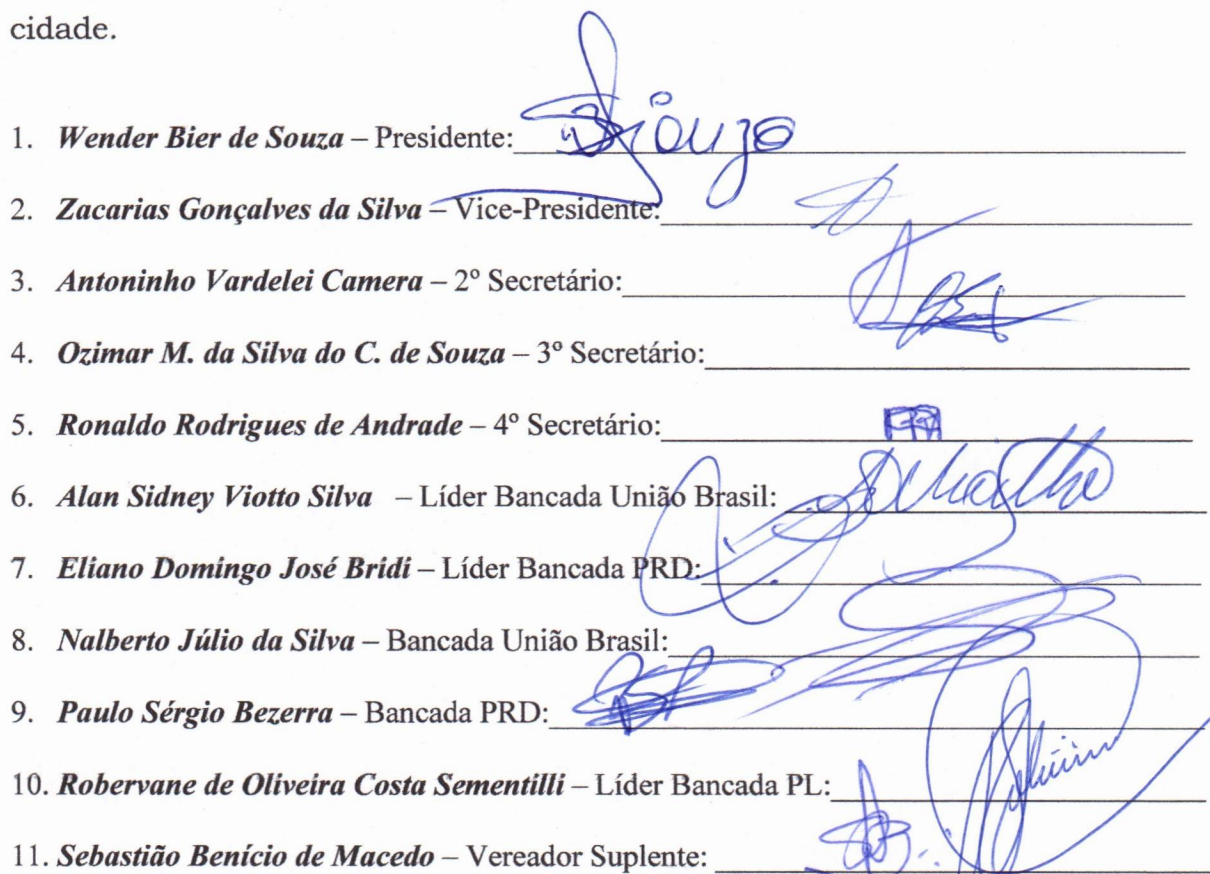 cidade.
1. Wender Bier de Souza – Presidente:
2. Zacarias Gonçalves da Silva – Vice-Presidente:
3. Antoninho Vardelei Camera – 2º Secretário:
4. Ozimar M. da Silva do C. de Souza – 3º Secretário:
5. Ronaldo Rodrigues de Andrade – 4º Secretário:
6. Alan Sidney Viotto Silva – Líder Bancada União Brasil:
7. Eliano Domingo José Bridi – Líder Bancada PRD:
8. Nalberto Júlio da Silva – Bancada União Brasil:
9. Paulo Sérgio Bezerra – Bancada PRD:
10. Robervane de Oliveira Costa Sementilli – Líder Bancada PL:
11. Sebastião Benício de Macedo – Vereador Suplente: